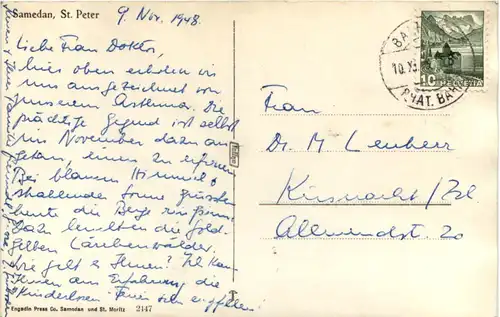 Samedan, St. Peter
9. Nov. 1948.
Liebe Frau Doktor,
hier oben erholen wir
uns ausgezeichnet von
unserem Asthma. Die
prächtige Gegend ist selbst
im November dazu an
getan, einen zu erfreuen
Bei blauem Himmel &
strahlender Sonne grüssten
heute die Berge
Dazu leuchten die Gold-
gelben Laubenwälder.
Wie geht es Ihnen? Ich kan
Ihnen aus Erfahrung die
"Kinderlosen" Ferien sehr empfehlen!
Engadin Press Co. Samedan und St. Moritz 2147
10
HELVETIA
10. XI
Frau
Dr. M Leuherr
Küsnacht/Zch.
Allmendstr. 20